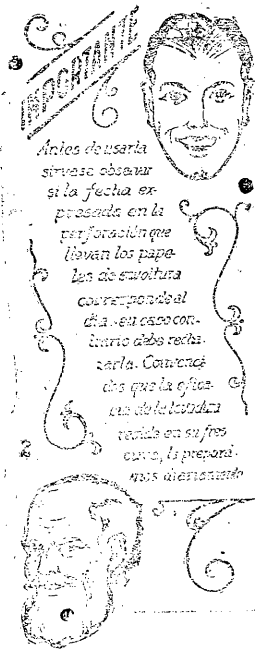 IMPORTANTE
Antes de usarla
sirvase observar
si la fecha ex-
presada en la
perforación que
llevan los pape-
les de envoltura
corresponde al
dia. en caso con-
trario debe recha-
zarla. Convenci-
dos que la efica-
cia de la levadura
reside en su fres
cura, la prepara-
mos diariamente